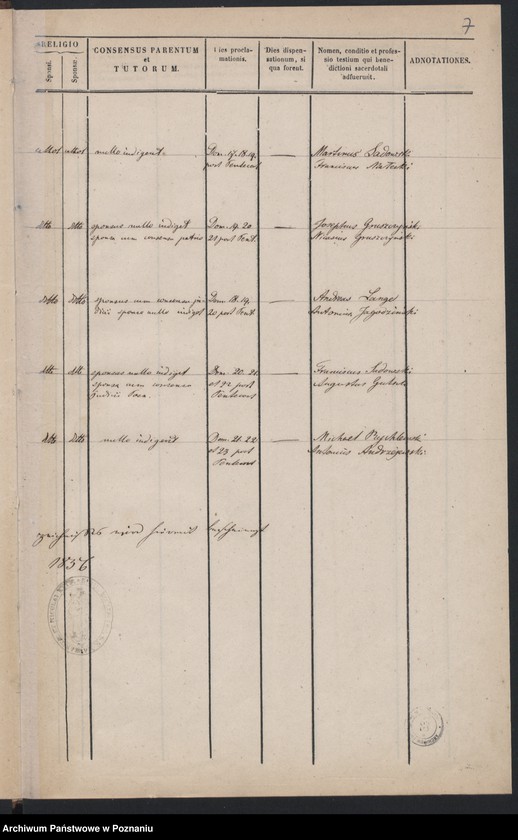 7
RELIGIO
Sponsi.
Sponsae.
CONSENSUS PARENTUM
et
TUTORUM.
Dies procla-
mationis.
Dies dispen-
sationum, si
qua foret.
Nomen, conditio et profes-
sio testium qui bene-
dictioni sacerdotali
adfuerunt.
ADNOTATIONES.
nullo indigent.
Dom. 17. 18. 19.
post Pentecost
Martinus Sadowski
Franciscus
ditto ditto
sponsus nullo indiget
sponsa cum consensu patris
Dom. 19. 20
21 post Pent.
Josephus Gruszczyński
Gruszczyński
ditto ditto
sponsus cum consensu ju-
dicii sponsa nullo indiget
Dom. 18. 19.
20 post Pent.
Andreas Lange
Antonius Jagodziński
ditto ditto
sponsus nullo indiget
sponsa cum consensu
Judicii
Dom. 20. 21.
et 22 post
Pentecost
Franciscus Sadowski
Augustus
ditto ditto
nullo indigent
Dom. 21. 22
et 23 post
Pentecost
Michael Rychlewski
Antonius Andrzejewski
wird hiermit bescheinigt
1856
Archiwum Państwowe w Poznaniu